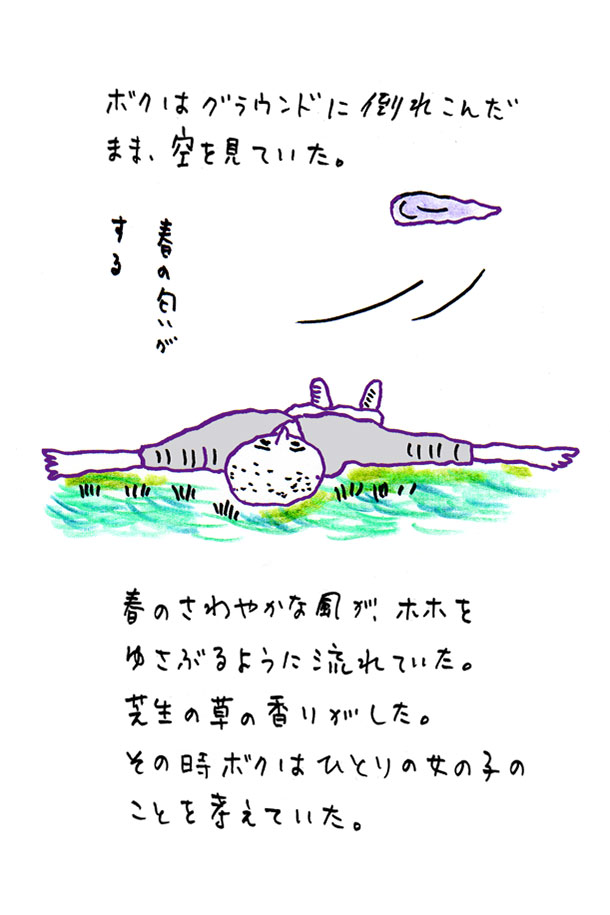 ボクはグラウンドに倒れこんだ
まま、空を見ていた。
春の匂いが
する
春のさわやかな風が、ホホを
ゆさぶるように流れていた。
芝生の草の香りがした。
その時ボクはひとりの女の子の
ことを考えていた。